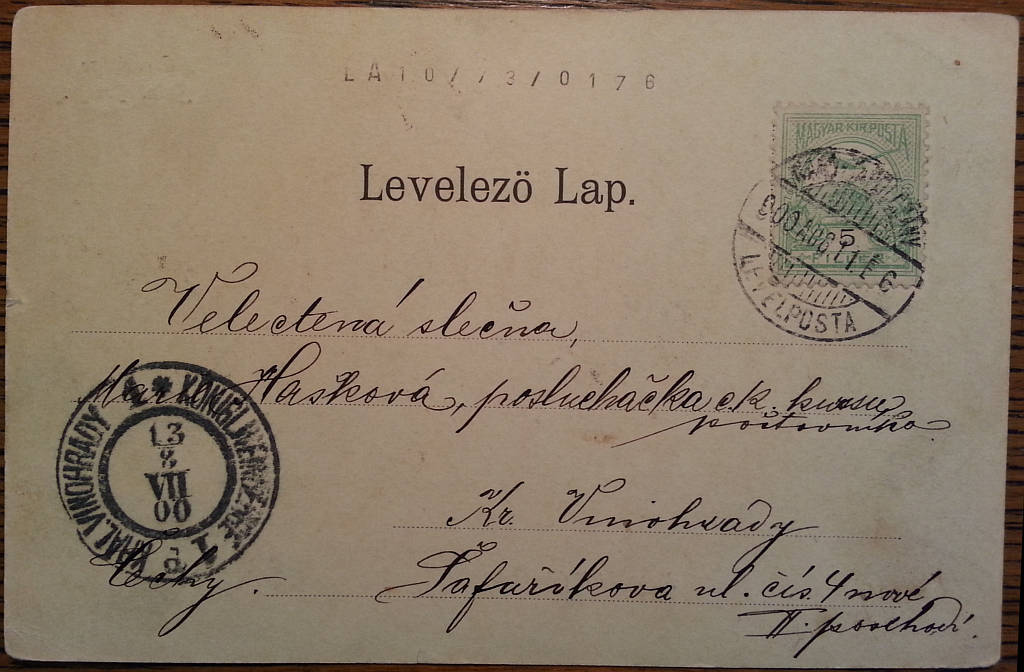 LA10//3/0176
MAGYAR KIR. POSTA
5
900 AUG. 11 E 6
LEVELPOSTA
Levelező Lap.
Velectěná slečna,
Marie Hašková, posluchačka c.k. kursu
poštovního
KRÁL. VINOHRADY 1 * KÖNIGL. WEINBERGE
13
8
VII
00
Kr. Vinohrady
Čechy.
Šafaříkova ul. čís. 4 nové
II. poschodí.